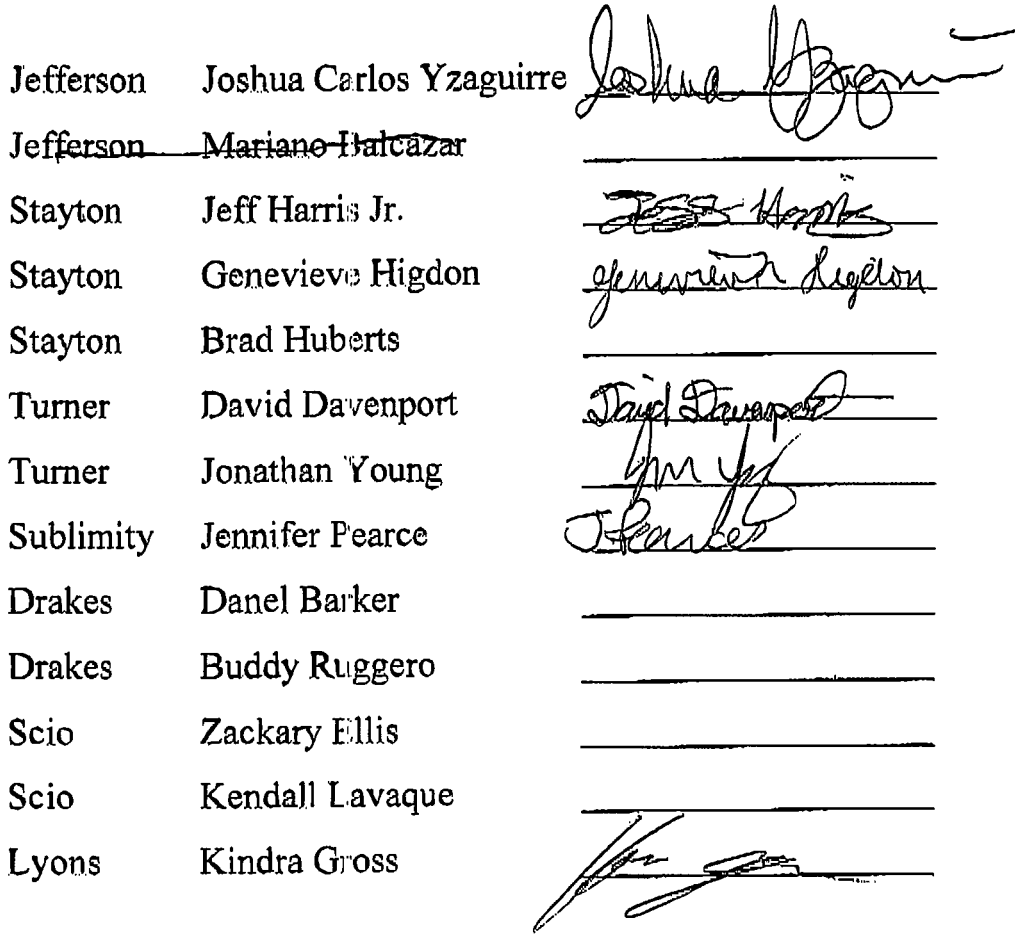 Jefferson Joshua Carlos Yzaguirre Joshua Yzaguirre
Jefferson Mariano Balcazar
Stayton Jeff Harris Jr. Jeff Harris
Stayton Genevieve Higdon Genevieve Higdon
Stayton Brad Huberts
Turner David Davenport David Davenport
Turner Jonathan Young
Sublimity Jennifer Pearce J Pearce
Drakes Danel Barker
Drakes Buddy Ruggero
Scio Zackary Ellis
Scio Kendall Lavaque
Lyons Kindra Gross